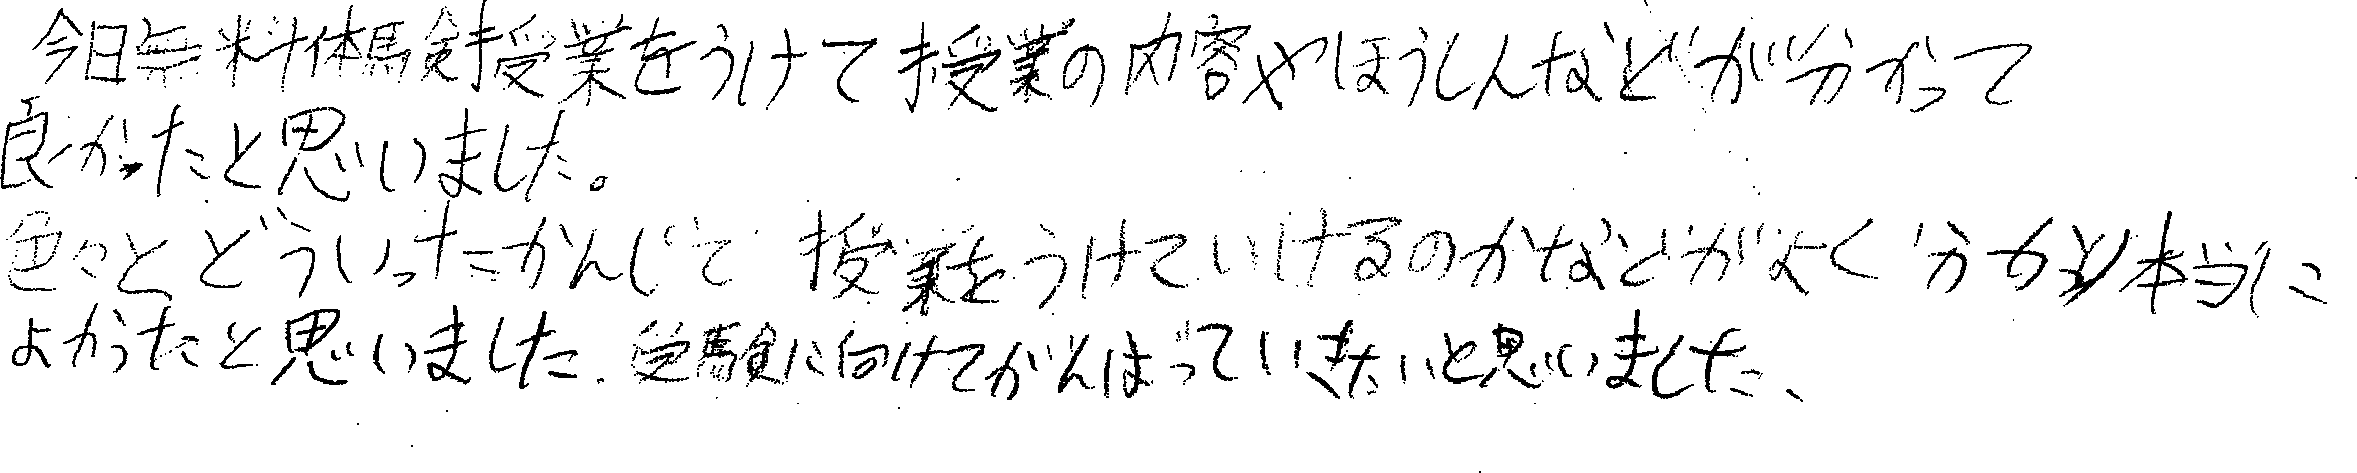 今日無料体験授業をうけて授業の内容やほうしんなどが分かって
良かったと思いました。
色々とどういったかんじで授業をうけていけるのかなどがよく分かり本当に
よかったと思いました。受験に向けてがんばっていきたいと思いました、